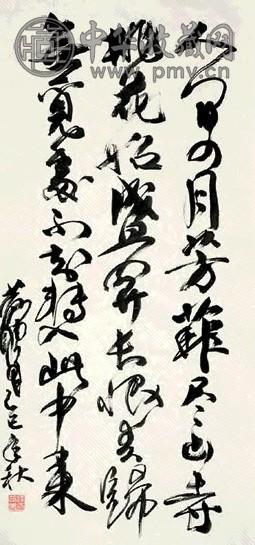 中华收藏网
www.pmv.cn
人间四月芳菲尽山寺
桃花始盛开长恨春歸
無覓處不知轉入此中来
乙巳年秋